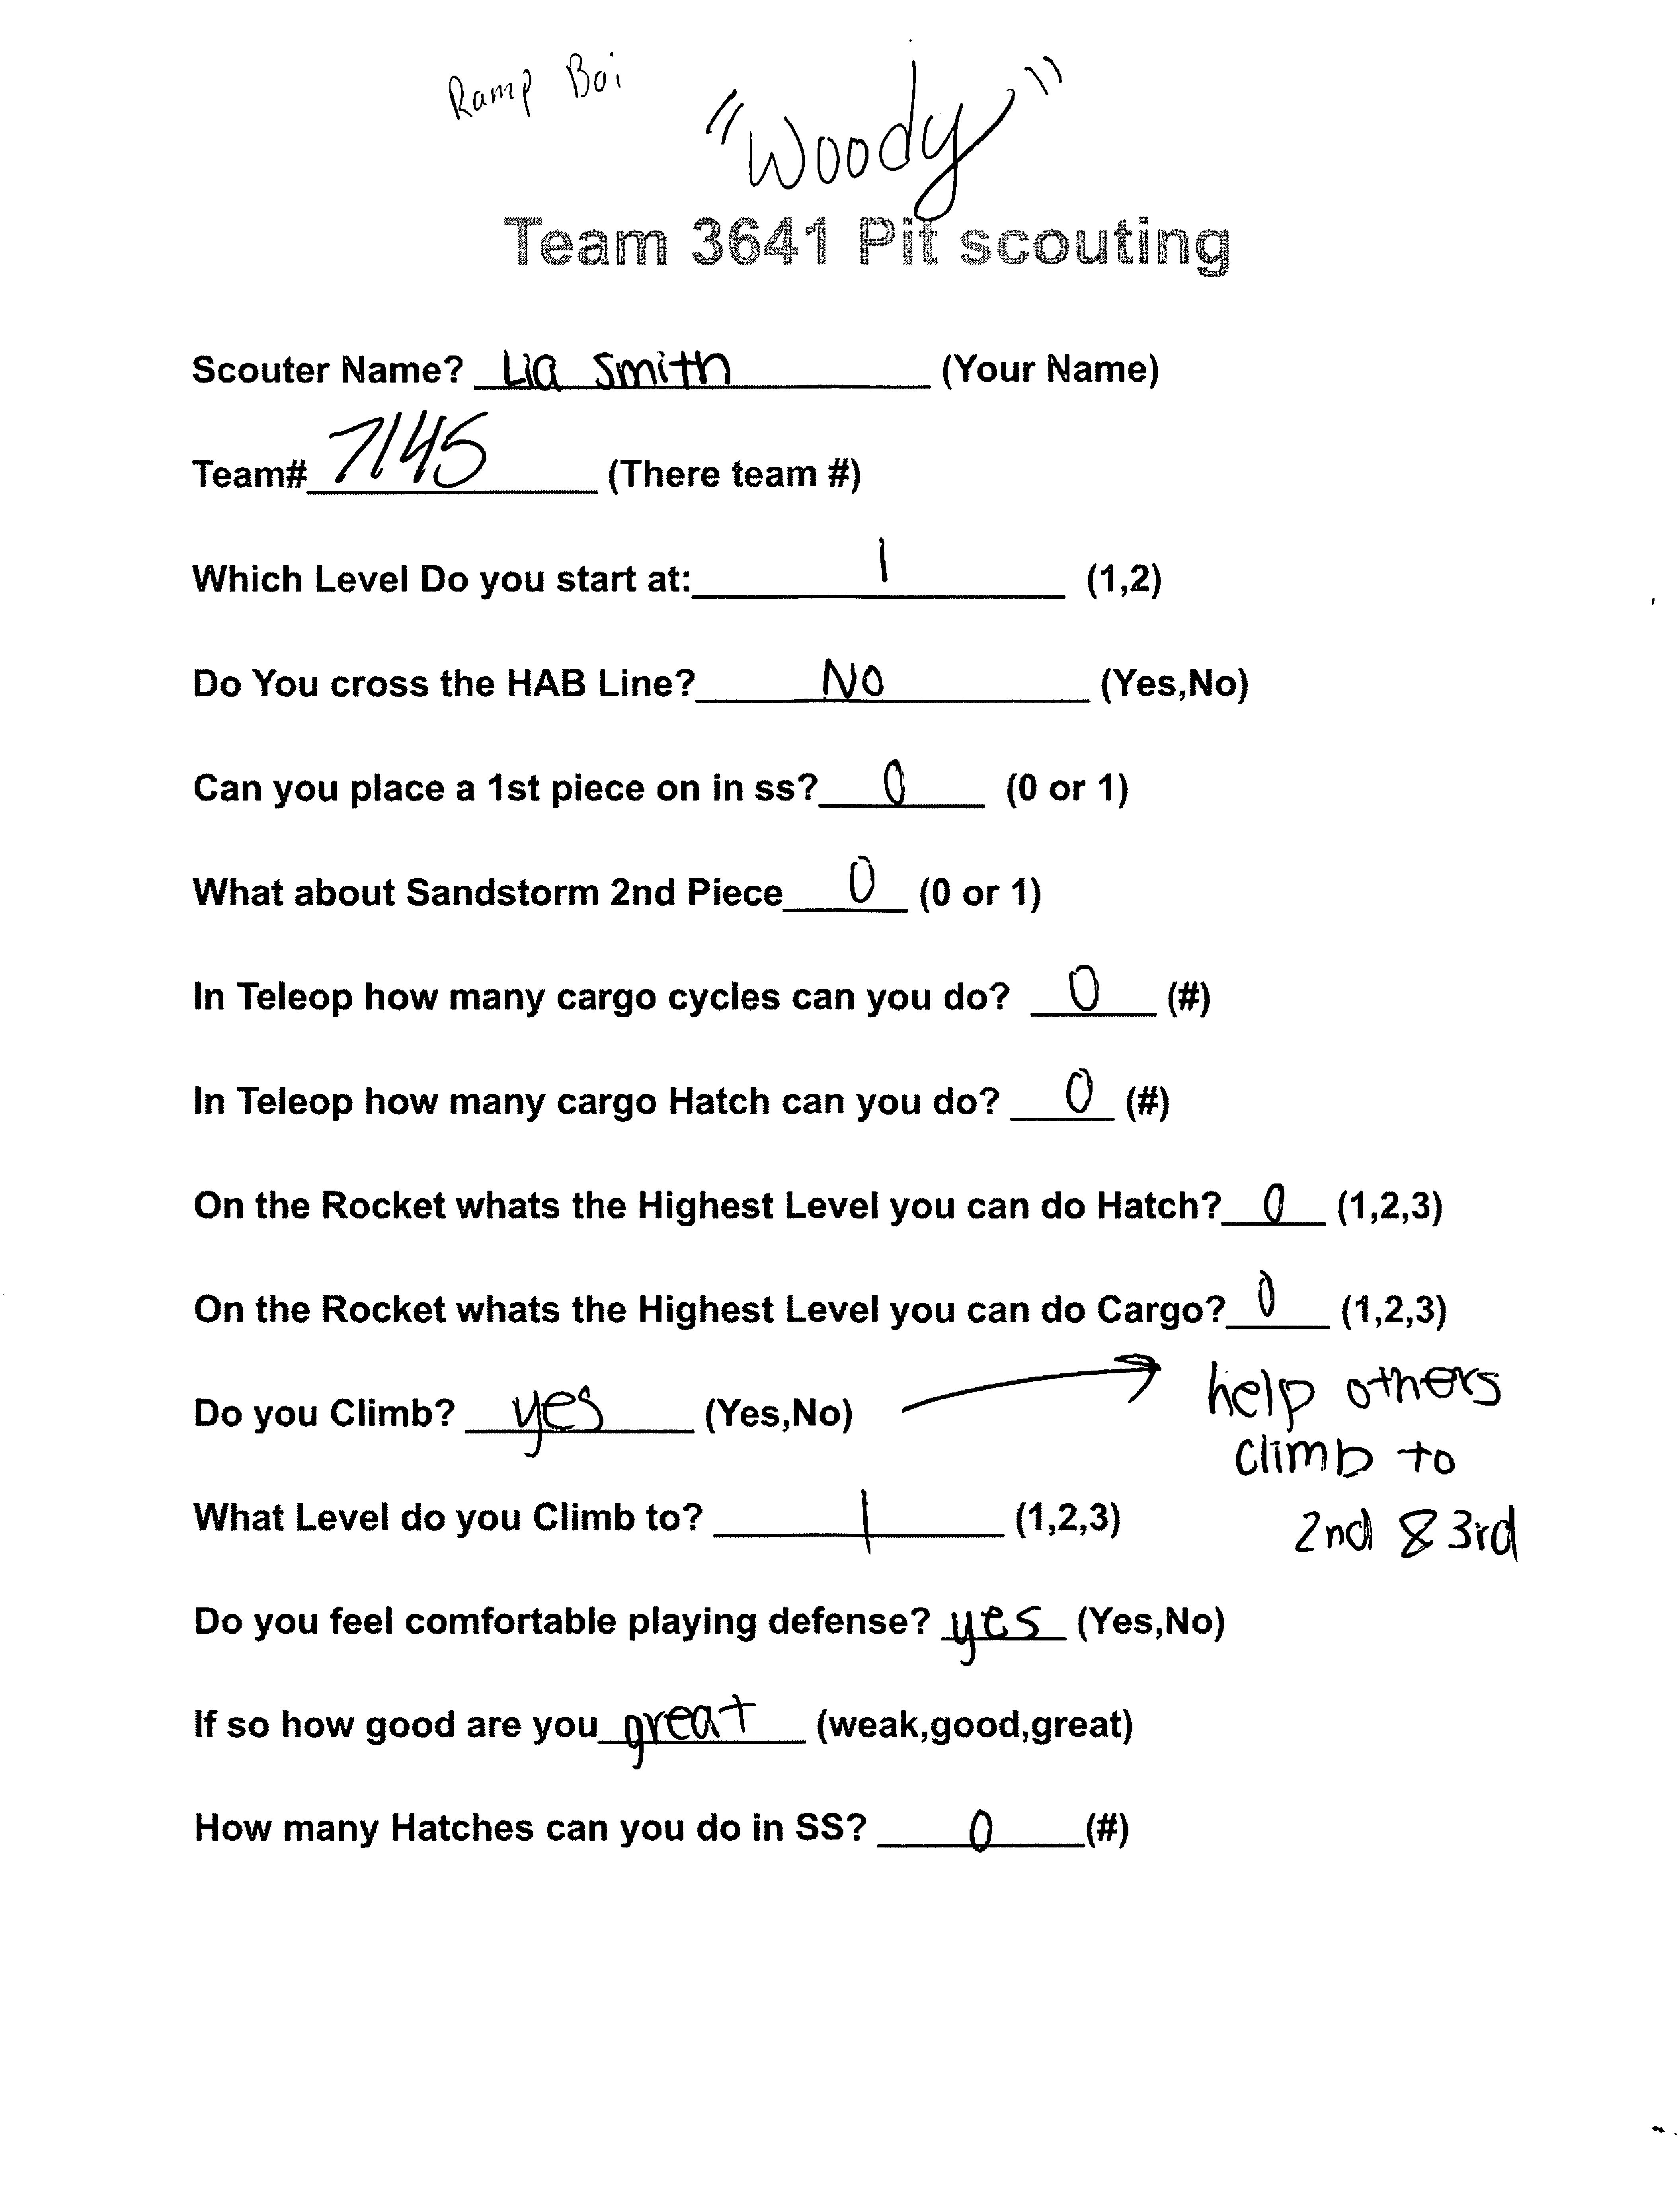 Ramp Boi
"Woody"
Team 3641 Pit scouting
Scouter Name? Lia Smith (Your Name)
Team# 7145 (There team #)
Which Level Do you start at: 1 (1,2)
Do You cross the HAB Line? No (Yes,No)
Can you place a 1st piece on in ss? 0 (0 or 1)
What about Sandstorm 2nd Piece 0 (0 or 1)
In Teleop how many cargo cycles can you do? 0 (#)
In Teleop how many cargo Hatch can you do? 0 (#)
On the Rocket whats the Highest Level you can do Hatch? 0 (1,2,3)
On the Rocket whats the Highest Level you can do Cargo? 0 (1,2,3)
Do you Climb? yes (Yes,No) → help others
climb to
What Level do you Climb to? 1 (1,2,3) 2nd & 3rd
Do you feel comfortable playing defense? yes (Yes,No)
If so how good are you great (weak,good,great)
How many Hatches can you do in SS? 0 (#)